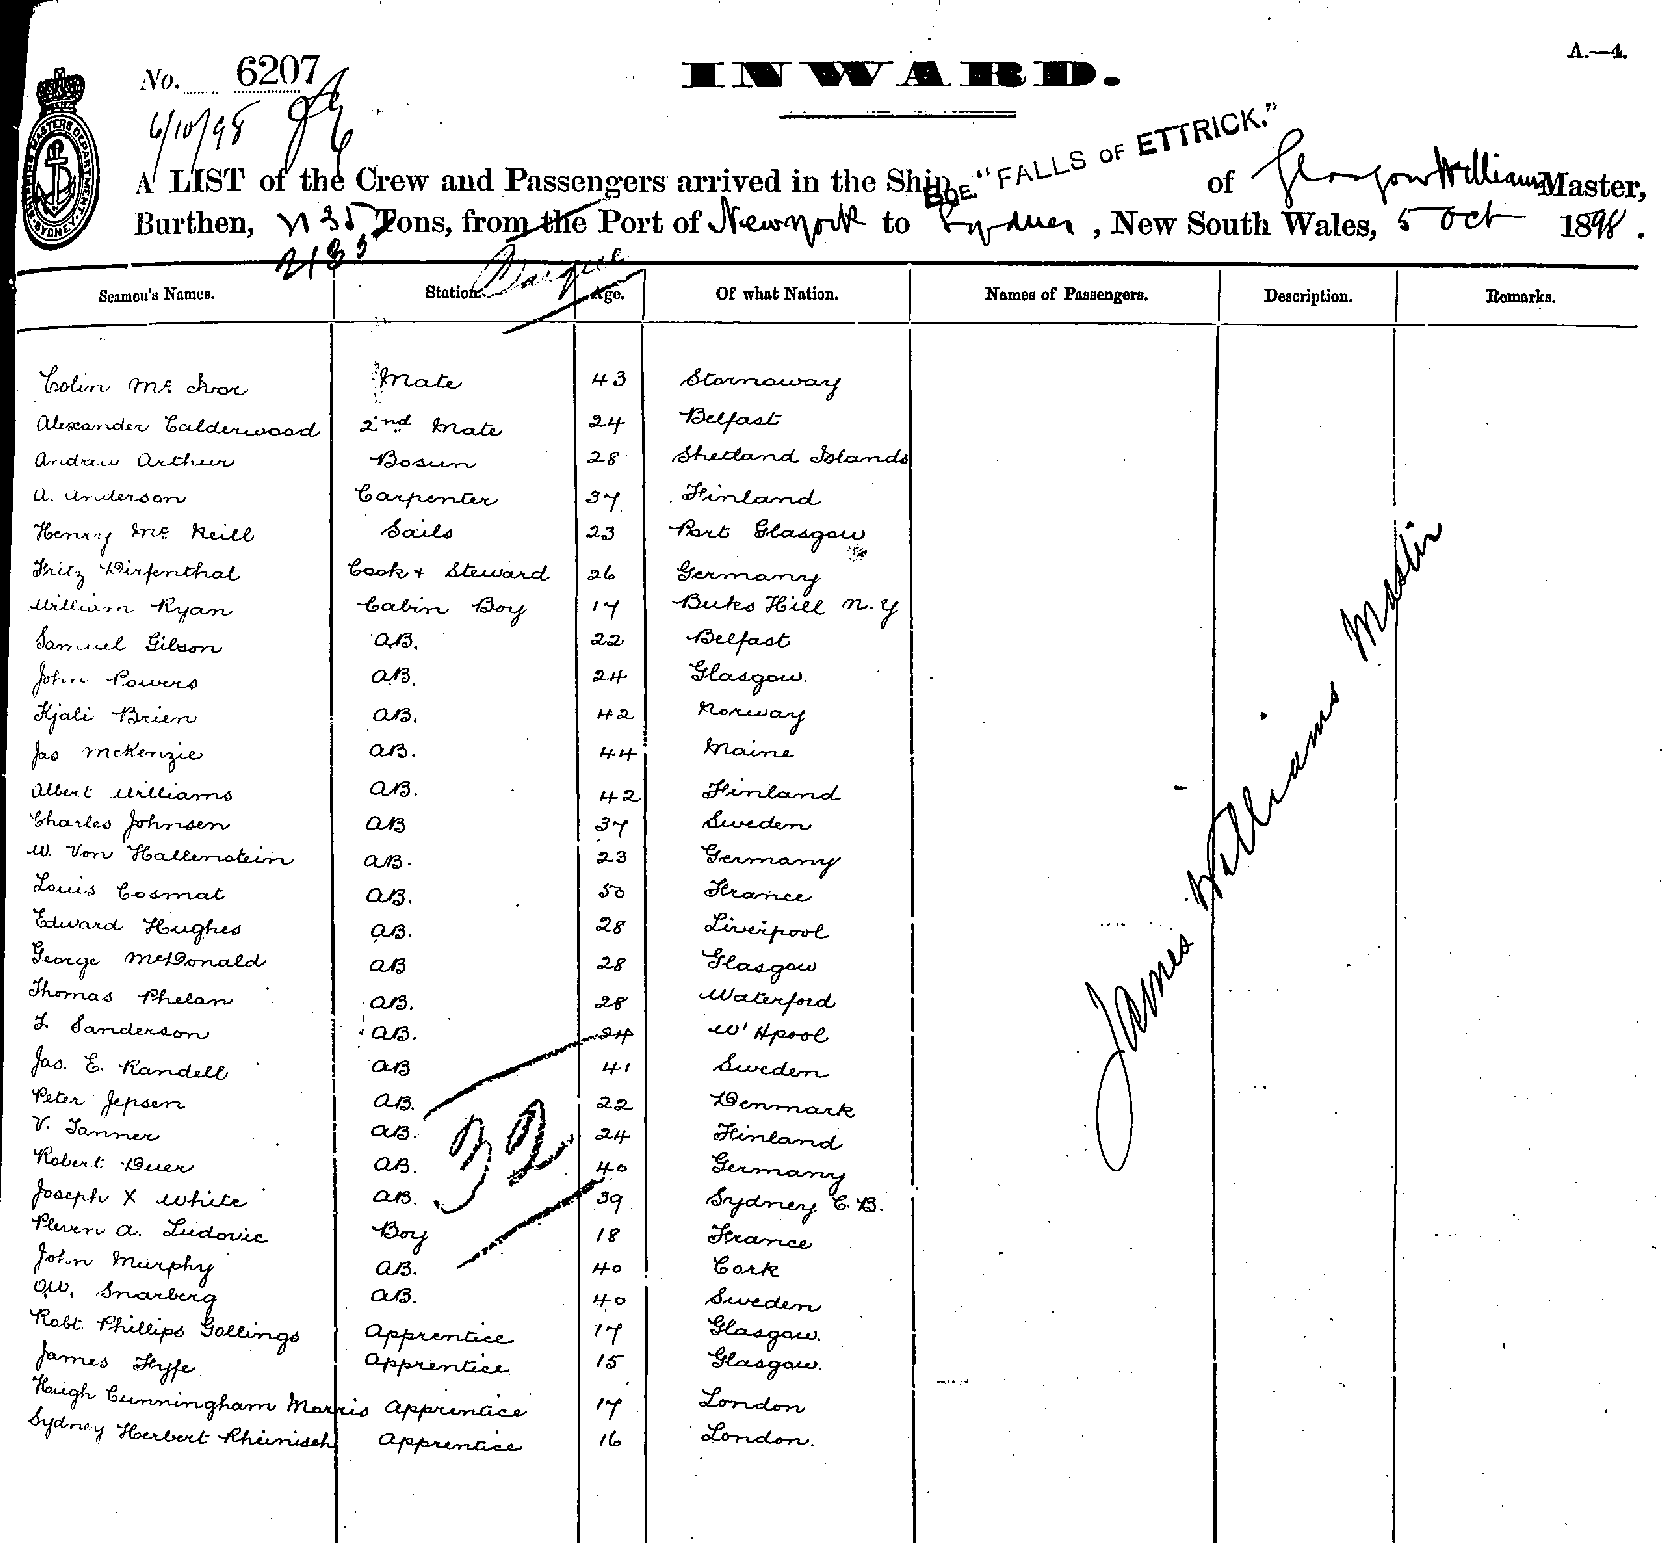 A.—4.
No. 6207
INWARD.
6/10/98
A LIST of the Crew and Passengers arrived in the Ship "FALLS OF ETTRICK." of Glasgow Williams Master,
Burthen, Tons, from the Port of New York to Sydney, New South Wales, 5 Oct 1898.
2135 Barque
Seamen's Names. Station. Age. Of what Nation. Names of Passengers. Description. Remarks.
Colin Mc Ivor Mate 43 Stornoway
Alexander Calderwood 2nd Mate 24 Belfast
Andrew Arthur Bosun 28 Shetland Islands
A. Anderson Carpenter 37 Finland
Henry Mc Neill Sails 23 Port Glasgow
Fritz Dirfenthal Cook + Steward 26 Germany
William Ryan Cabin Boy 17 Buks Hill N.Y
Samuel Gilson AB. 22 Belfast
John Powers AB. 24 Glasgow.
Kjali Brien AB. 42 Norway
Jas McKenzie AB. 44 Maine
Albert Williams AB. 42 Finland
Charles Johnsen AB 37 Sweden
W. Von Hallenstein AB. 23 Germany
Louis Cosmat AB. 50 France
Edward Hughes AB. 28 Liverpool
George McDonald AB 28 Glasgow
Thomas Phelan AB. 28 Waterford
F. Sanderson AB. 24 W'Hpool
Jas. E. Randell AB 41 Sweden
Peter Jepsen AB. 22 Denmark
V. Tanner AB. 24 Finland
Robert Duer AB. 40 Germany
Joseph X White AB. 39 Sydney C.B.
Pleven A. Ludovic Boy 18 France
John Murphy AB. 40 Cork
O.W. Snarberg AB. 40 Sweden
Robt. Phillips Gollings Apprentice 17 Glasgow.
James Fyfe Apprentice 15 Glasgow.
Hugh Cunningham Morris Apprentice 17 London
Sydney Herbert Rheinisch Apprentice 16 London.
32
James Williams Master